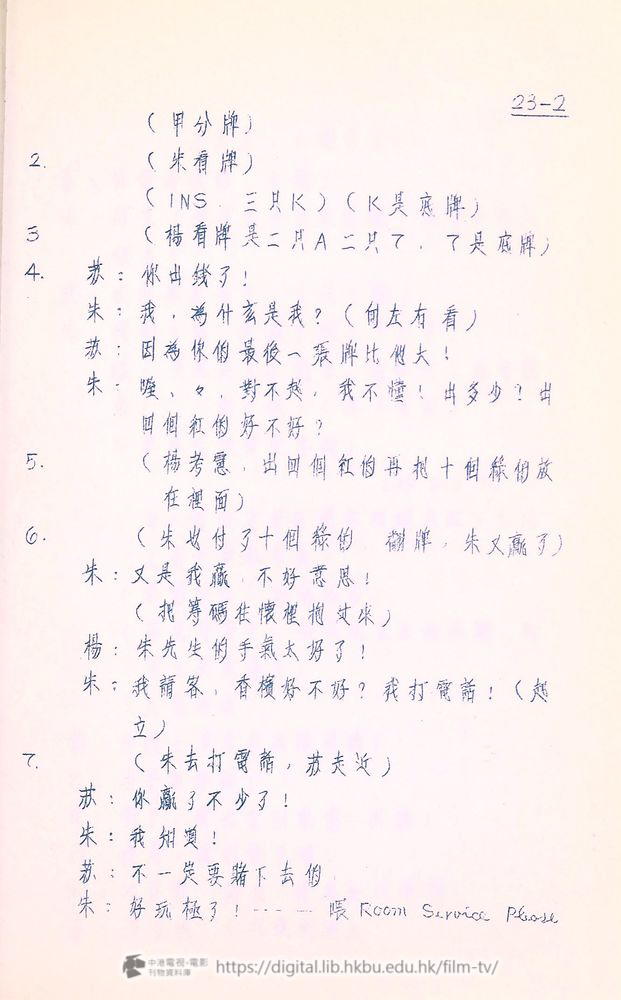 23-2
(甲分牌)
2. (朱看牌)
(INS. 三只K)(K是底牌)
3 (楊看牌是二只A二只7，7是底牌)
4. 苏：你出錢了!
朱：我，為什麼是我?(向左右看)
苏：因為你的最後一張牌比他大!
朱：喔、々，對不起，我不懂!出多少?出
四個紅的好不好?
5. (楊考慮，出四個紅的再把十個綠的放
在裡面)
6. (朱也付了十個綠的，翻牌，朱又贏了)
朱：又是我贏，不好意思!
(把筹碼往懷裡抱过來)
楊：朱先生的手氣太好了!
朱：我請客，香檳好不好?我打電話!(起
立)
7. (朱去打電話，苏走近)
苏：你贏了不少了!
朱：我知道!
苏：不一定要賭下去的
朱：好玩極了!-----喂 Room Service Please
中港電視·電影
刊物資料庫
https://digital.lib.hkbu.edu.hk/film-tv/